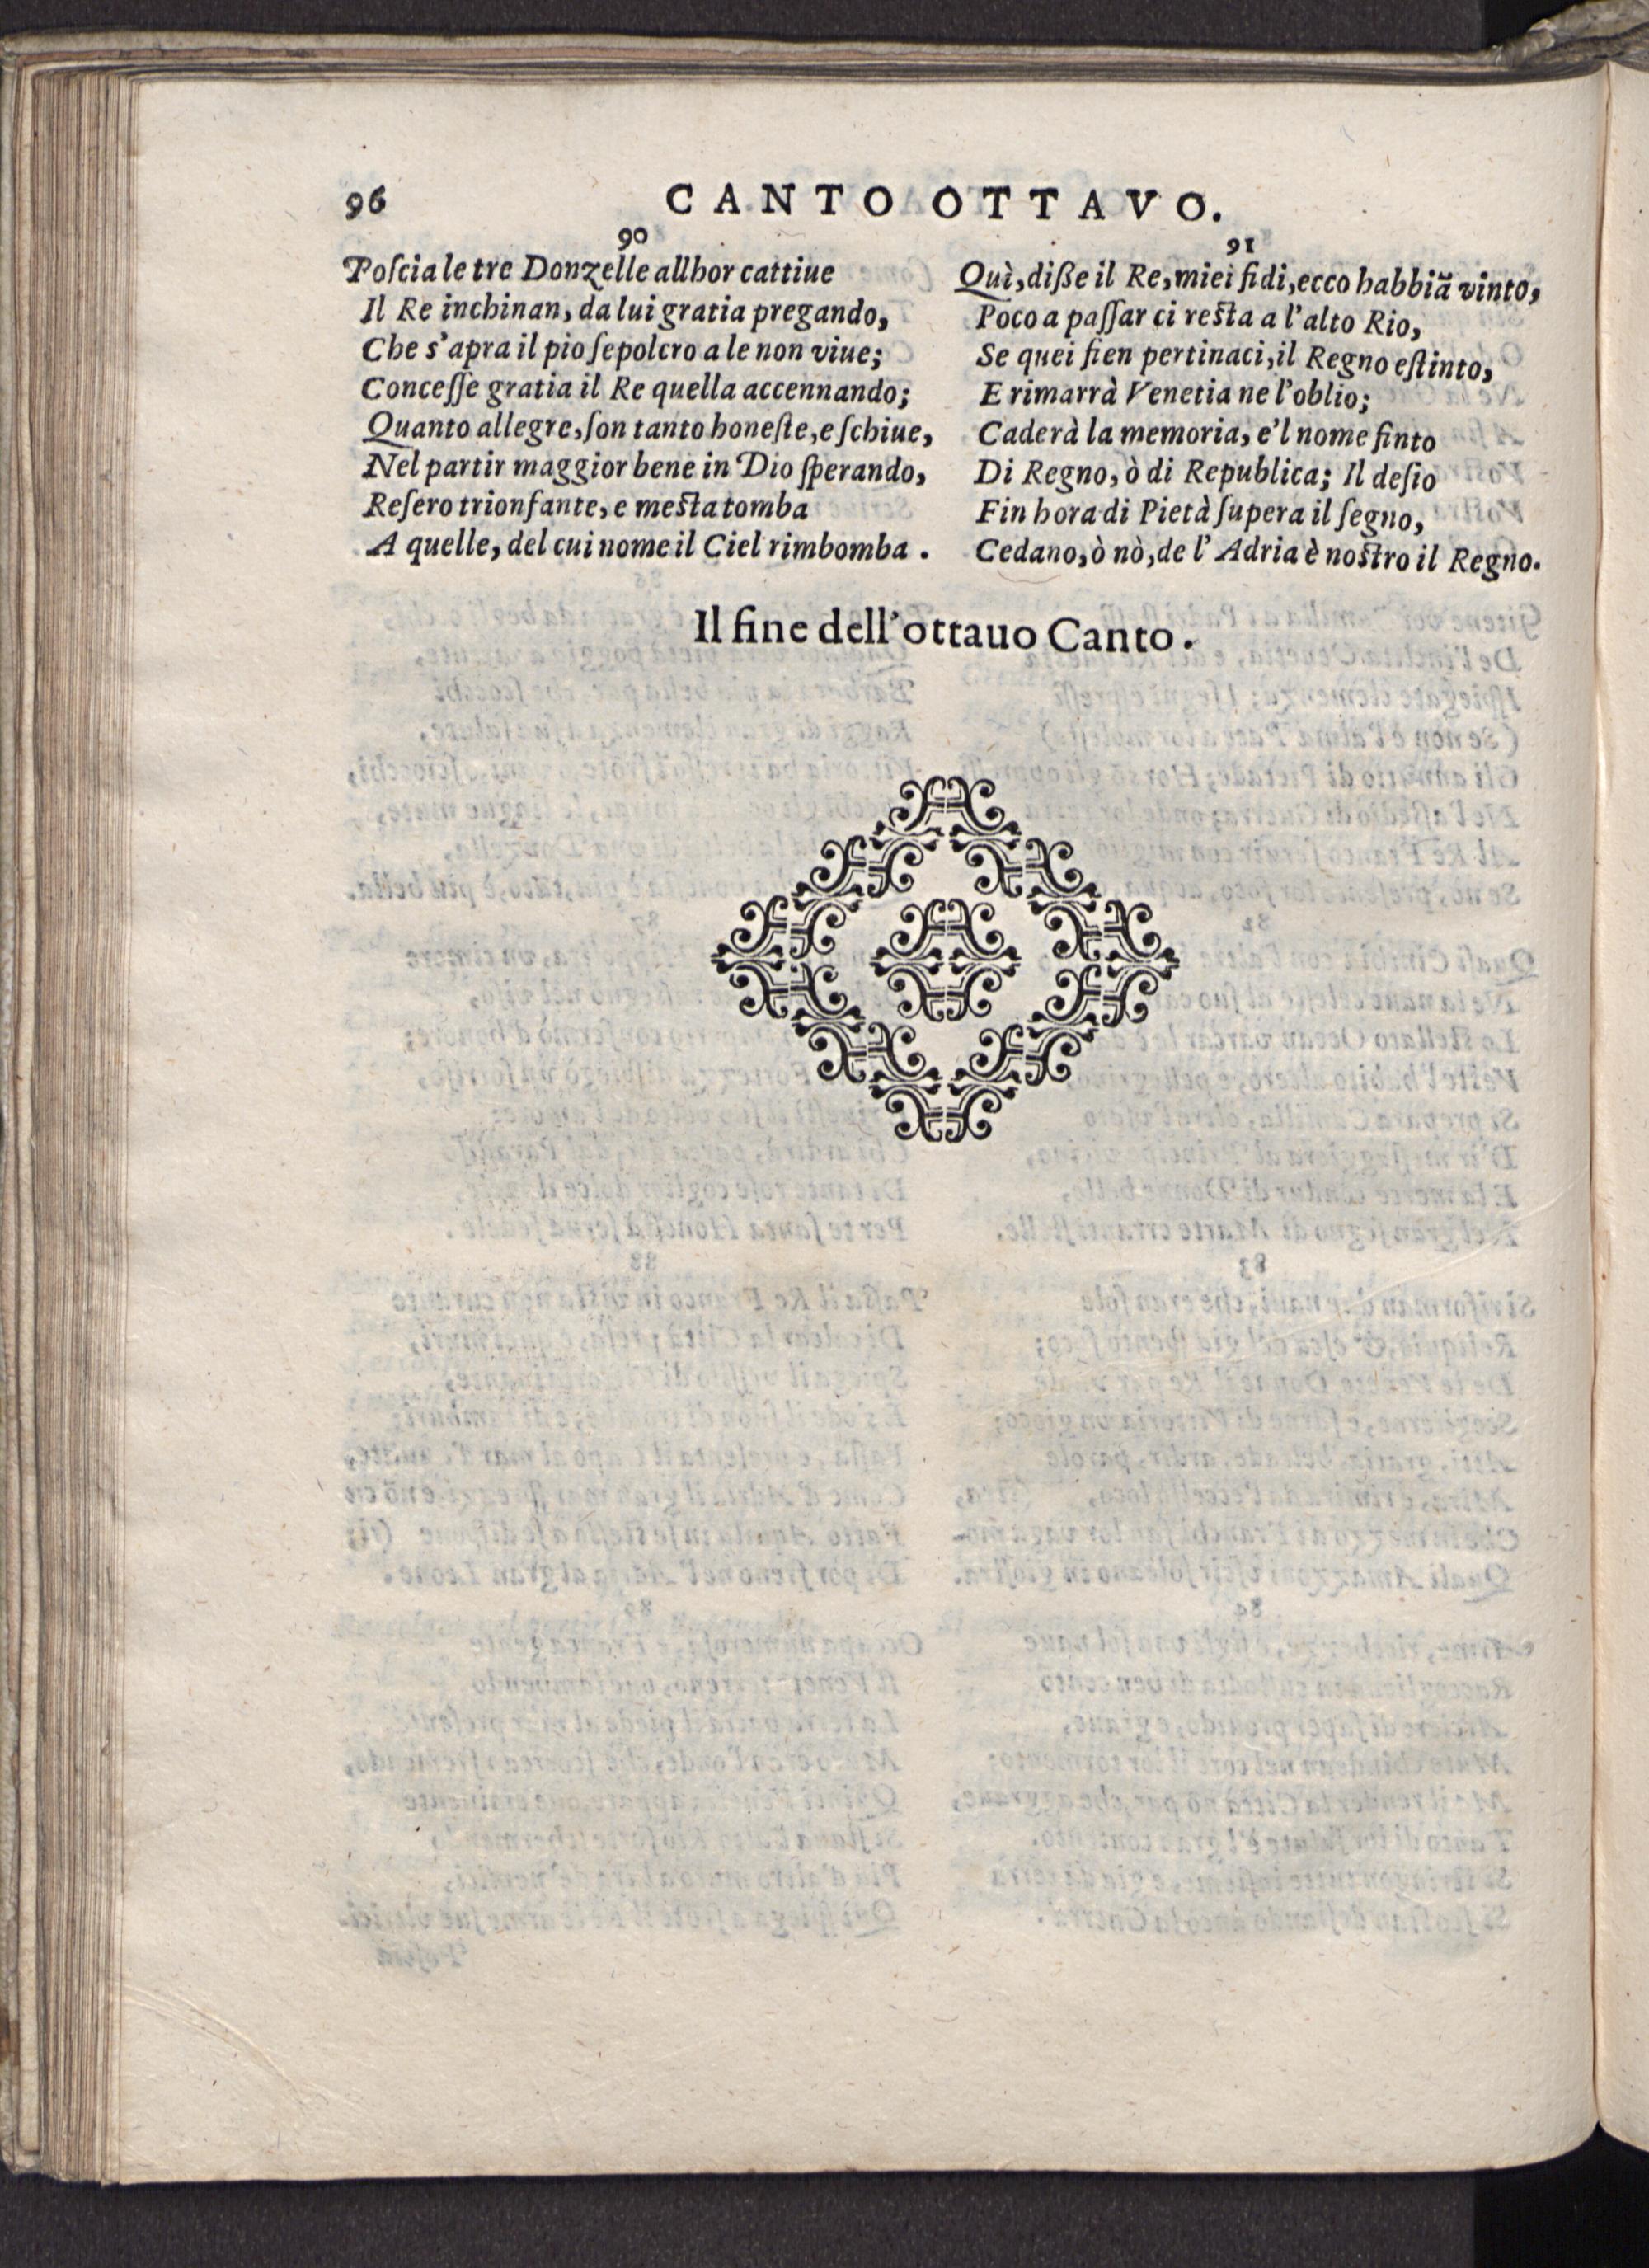 96
CANTO OTTAVO.
90
Poſcia le tre Donzelle allhor cattiue
Il Re inchinan, da lui gratia pregando,
Che s'apra il pio ſepolcro a le non viue;
Conceſſe gratia il Re quella accennando;
Quanto allegre, ſon tanto honeſte, e ſchiue,
Nel partir maggior bene in Dio ſperando,
Reſero trionfante, e meſta tomba
A quelle, del cui nome il Ciel rimbomba.
91
Quì, diße il Re, miei fidi, ecco habbiã vinto,
Poco a paſſar ci reſta a l'alto Rio,
Se quei fien pertinaci, il Regno eſtinto,
E rimarrà Venetia ne l'oblio;
Caderà la memoria, e'l nome finto
Di Regno, ò di Republica; Il deſio
Fin hora di Pietà ſupera il ſegno,
Cedano, ò nò, de l'Adria è noſtro il Regno.
Il fine dell'ottauo Canto.